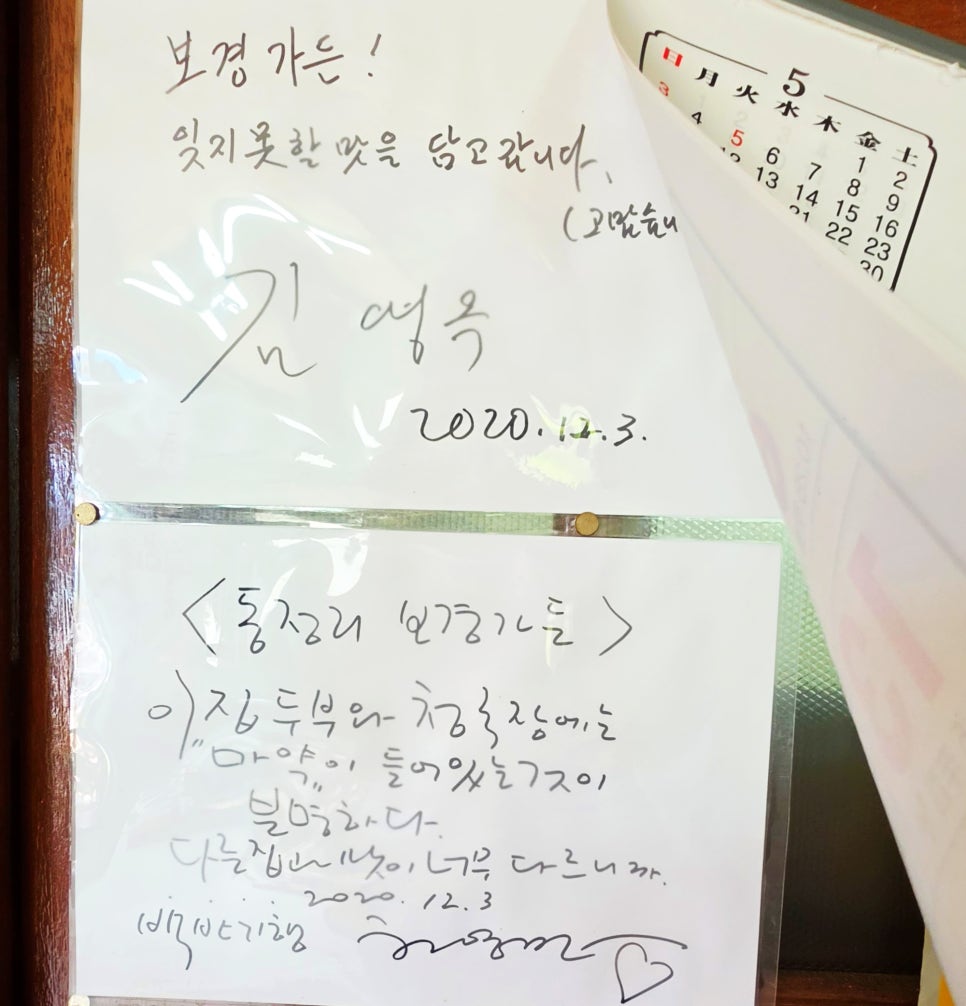 보경가든!
잊지못할 맛을 담고갑니다.
(고맙습니
김영옥
2020.12.3.
<동정리 보경가든>
이집 두부와 청국장에는
"마약"이 들어있는것이
분명하다.
다른집과 맛이 너무 다르니까.
2020.12.3
백반기행
허영만
5
日 月 火 水 木 金 土
1 2
3 4 5 6 7 8 9
12 13 14 15 16
21 22 23
30